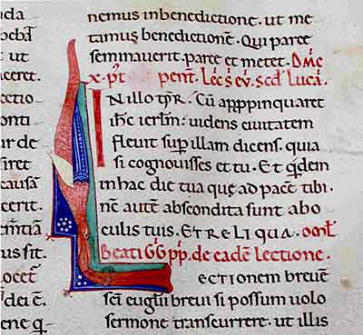 ida
ut
ceret.
ectio
ur de
siret
causã
cerit.
us sit.
ocet
dei ẽ.
ene q.
nemus inbenedictione. ut me
tamus benedictionẽ. Qui parce
seminauerit. parce et metet. Dñic
x. p̃t pent̃. Lec̃ s̃ eṽ. secđ Lucã.
IN illo tp̃r. Cũ appppinquaret
ihc̃ ierlm̃: uidens ciuitatem
fleuit sup̱ illam dicens. quia
si cognouisses et tu. Et qͥdem
in hac die tua que ad pacẽ tibi.
nc̃ autẽ abscondita sunt abo
culis tuis. ET RELIQUA. oml̃
Beati GG̃ pp̃. de eadẽ lectione.
Lectionem breuẽ
sc̃i eug̃lii breui si possum uolo
sermone transcurrere. ut illis